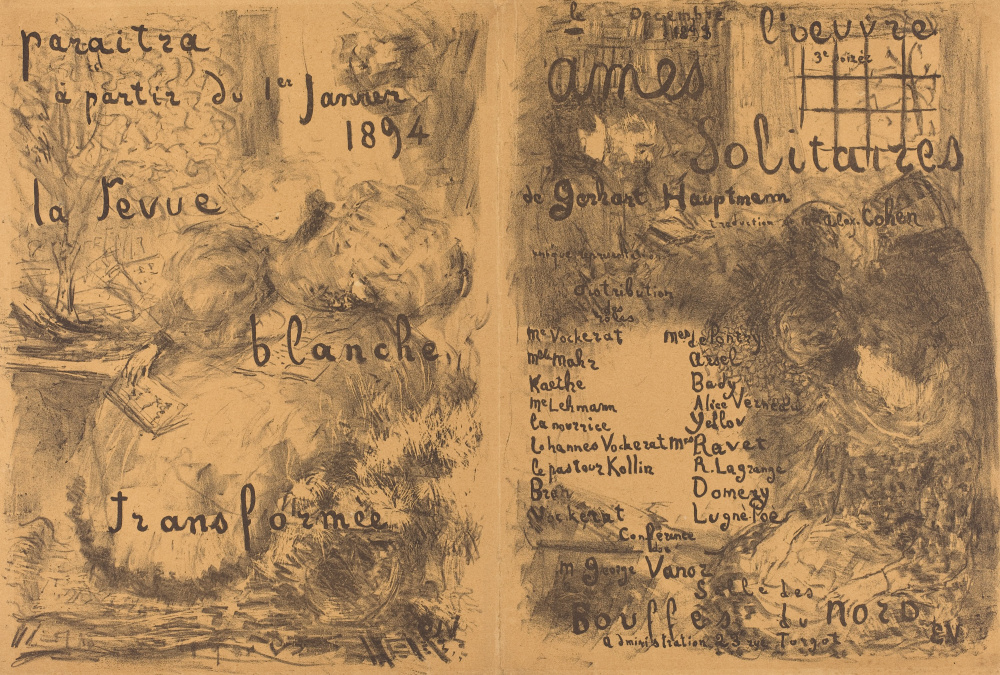 paraitra
à partir du 1er Janvier
1894
la revue
blanche
transformée
EV
le Decembre
1893
l'oeuvre
3e soirée
ames
Solitaires
de Gerrart Hauptmann
traduction de Mr Alex. Cohen
unique représentation
distribution
des
rôles
Me Vockerat Mes de Pontry
Melle Mahr
Kaethe Bady
Me Lehmann Alice Verneau
la nourrice
Iohannes Vockerat Mrs Ravet
le pasteur Kollin R. Lagrange
Bran Domery
Vockerat Lugné Poe
Conférence
de
M George Vanor
Salle des
Bouffes du Nord
Administration 23 rue Turgot
EV